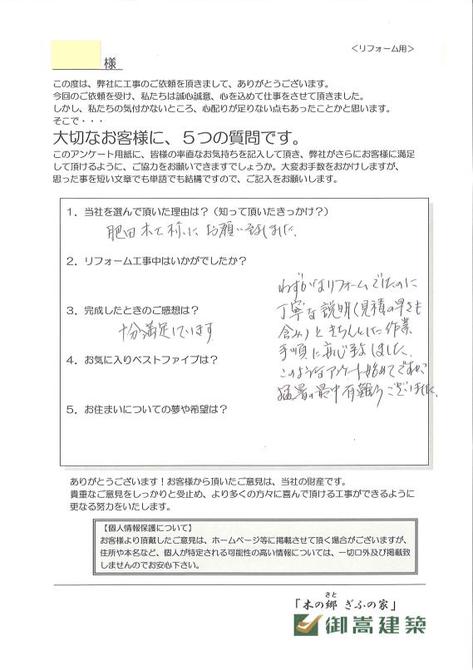 <リフォーム用>
様
この度は、弊社に工事のご依頼を頂きまして、ありがとうございます。
今回のご依頼を受け、私たちは誠心誠意、心を込めて仕事をさせて頂きました。
しかし、私たちの気付かないところ、心配りが足りない点もあったことかと思います。
そこで・・・
大切なお客様に、５つの質問です。
このアンケート用紙に、皆様の率直なお気持ちを記入して頂き、弊社がさらにお客様に満足
して頂けるように、ご協力をお願いできますでしょうか。大変お手数をおかけしますが、
思った事を短い文章でも単語でも結構ですので、ご記入をお願いします。
１．当社を選んで頂いた理由は？（知って頂いたきっかけ？）
肥田木工様にお願いしました。
２．リフォーム工事中はいかがでしたか？
３．完成したときのご感想は？
十分満足しています
４．お気に入りベストファイブは？
５．お住まいについての夢や希望は？
わずかなリフォームでたのに
丁寧な説明（見積の早さも
含み）ときちんとした作業
手順に感心致しました。
このようなアンケート始めてですが、
猛暑の最中有難うございました。
ありがとうございます！お客様から頂いたご意見は、当社の財産です。
貴重なご意見をしっかりと受止め、より多くの方々に喜んで頂ける工事ができるように
更なる努力をいたします。
【個人情報保護について】
お客様より頂戴したご意見は、ホームページ等に掲載させて頂く場合がございますが、
住所や本名など、個人が特定される可能性の高い情報については、一切口外及び掲載致
しませんのでお安心下さい。
さと
「木の郷 ぎふの家」
御嵩建築